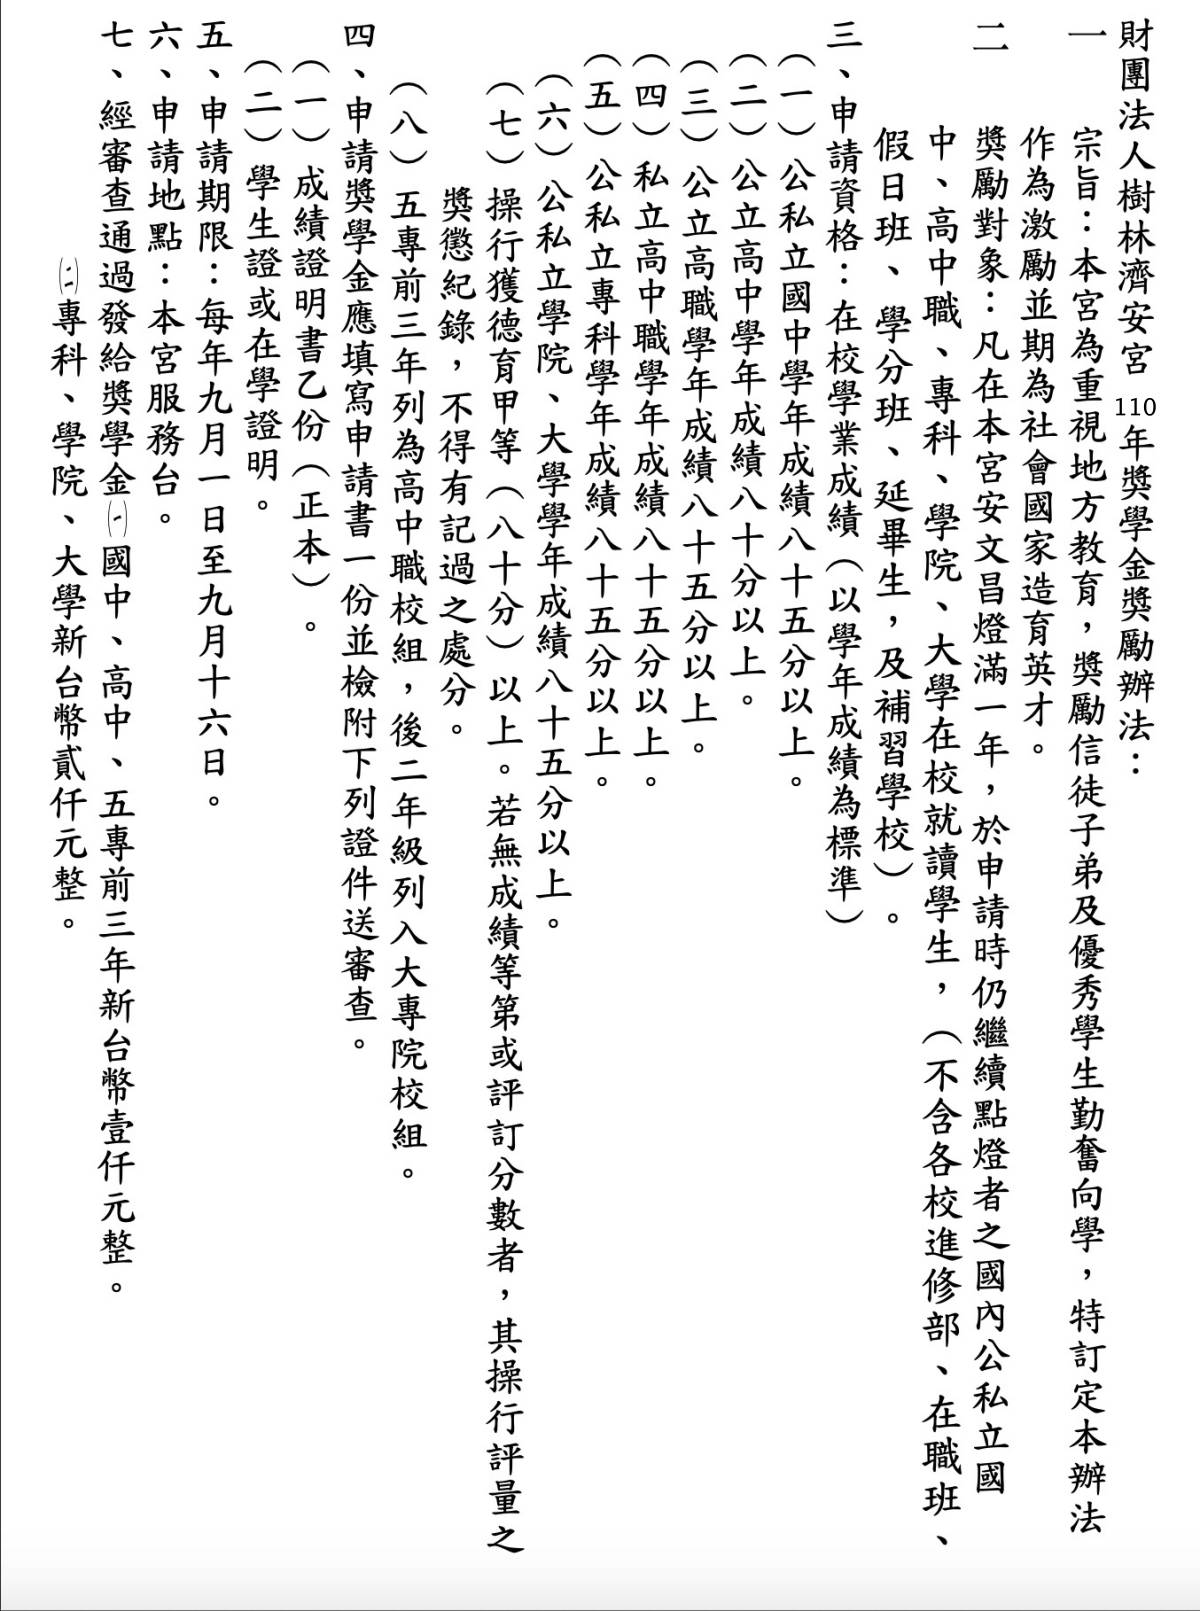 財團法人樹林濟安宮110年獎學金獎勵辦法：
一　宗旨：本宮為重視地方教育，獎勵信徒子弟及優秀學生勤奮向學，特訂定本辦法
作為激勵並期為社會國家造育英才。
二　獎勵對象：凡在本宮安文昌燈滿一年，於申請時仍繼續點燈者之國內公私立國
中、高中職、專科、學院、大學在校就讀學生，（不含各校進修部、在職班、
假日班、學分班、延畢生，及補習學校）。
三、申請資格：在校學業成績（以學年成績為標準）
（一）公私立國中學年成績八十五分以上。
（二）公立高中學年成績八十分以上。
（三）公立高職學年成績八十五分以上。
（四）私立高中職學年成績八十五分以上。
（五）公私立專科學年成績八十五分以上。
（六）公私立學院、大學學年成績八十五分以上。
（七）操行獲德育甲等（八十分）以上。若無成績等第或評訂分數者，其操行評量之
獎懲紀錄，不得有記過之處分。
（八）五專前三年列為高中職校組，後二年級列入大專院校組。
四、申請獎學金應填寫申請書一份並檢附下列證件送審查。
（一）成績證明書乙份（正本）。
（二）學生證或在學證明。
五、申請期限：每年九月一日至九月十六日。
六、申請地點：本宮服務台。
七、經審查通過發給獎學金㈠國中、高中、五專前三年新台幣壹仟元整。
㈡專科、學院、大學新台幣貳仟元整。